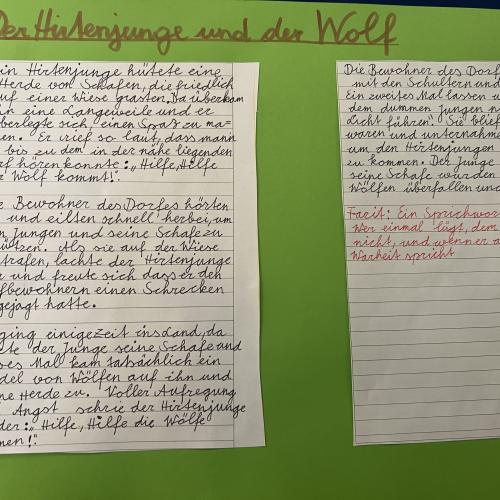 Der Hirtenjunge und der Wolf
in Hirtenjunge hütete eine
Herde von Schafen, die friedlich
uf einer Wiese grasten. Da überkam
n eine Langeweile und er
berlegte sich einen Spaß zu ma-
en. er rief so laut, dass mann
bis zu dem in der nähe liegenden
rf hören konnte: „Hilfe, Hilfe
r Wolf kommt".
e Bewohner des Dorfes hörten
und eilten schnell herbei, um
n Jungen und seine Schafe zu
ützen. Als sie auf der Wiese
trafen, lachte der Hirtenjunge
r und freute sich dass er den
fbewohnern einen Schrecken
gejagt hatte.
ging einigezeit ins Land, da
te der Junge seine Schafe und
ses Mal kam tatsächlich ein
del von Wölfen auf ihn und
ne Herde zu. Voller Aufregung
Angst schrie der Hirtenjunge
der: „Hilfe, Hilfe die Wölfe
men!"
Die Bewohner des Dorf
mit den Schultern und
Ein zweites Mal lassen w
dem dummen Jungen n
Licht führen". Sie blie
waren und unternahm
um den Hirtenjungen
zu kommen. Der Junge
seine Schafe wurden
Wölfen überfallen und
Fazit: Ein Sprichwor
Wer einmal lügt, dem
nicht, und wenn er a
Warheit spricht